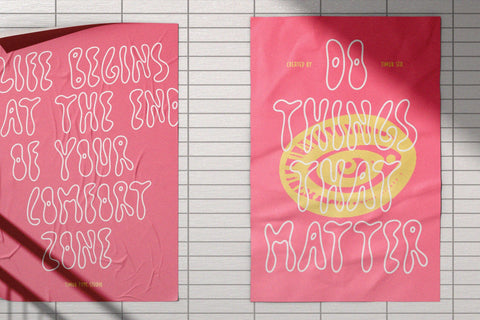 LIFE BEGINS
AT THE END
OF YOUR
COMFORT
ZONE
CREATED BY
DO
THINGS
THAT
MATTER